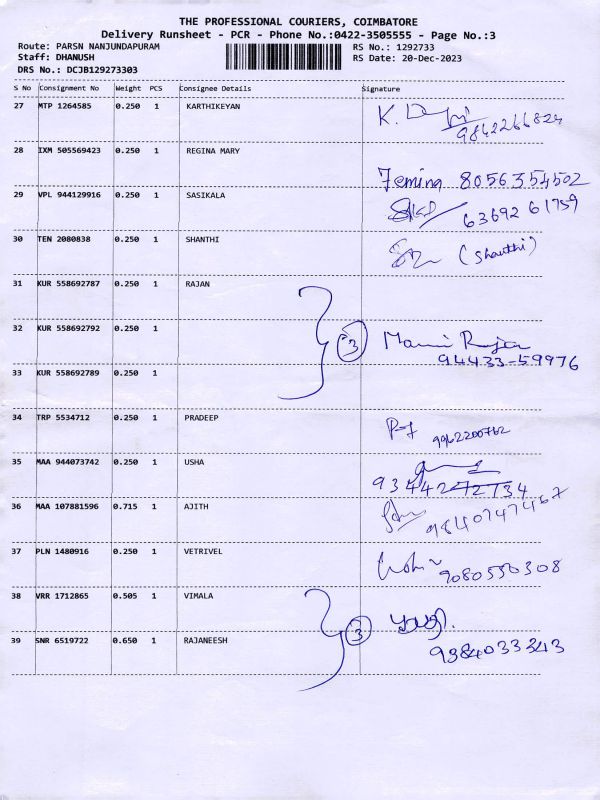 THE PROFESSIONAL COURIERS, COIMBATORE
Delivery Runsheet - PCR - Phone No.:0422-3505555 - Page No.:3
Route: PARSN NANJUNDAPURAM RS No.: 1292733
Staff: DHANUSH RS Date: 20-Dec-2023
DRS No.: DCJB129273303
S No Consignment No Weight PCS Consignee Details Signature
27 MTP 1264585 0.250 1 KARTHIKEYAN K.
9842266824
28 IXM 505569423 0.250 1 REGINA MARY
Femina 8056354502
29 VPL 944129916 0.250 1 SASIKALA
63692 61759
30 TEN 2080838 0.250 1 SHANTHI (Shanthi)
31 KUR 558692787 0.250 1 RAJAN
32 KUR 558692792 0.250 1 3
94433-59976
33 KUR 558692789 0.250 1
34 TRP 5534712 0.250 1 PRADEEP
9962200762
35 MAA 944073742 0.250 1 USHA
9344272734
36 MAA 107881596 0.715 1 AJITH
9840747467
37 PLN 1480916 0.250 1 VETRIVEL
9080550308
38 VRR 1712865 0.505 1 VIMALA
3
39 SNR 6519722 0.650 1 RAJANEESH
9384033343